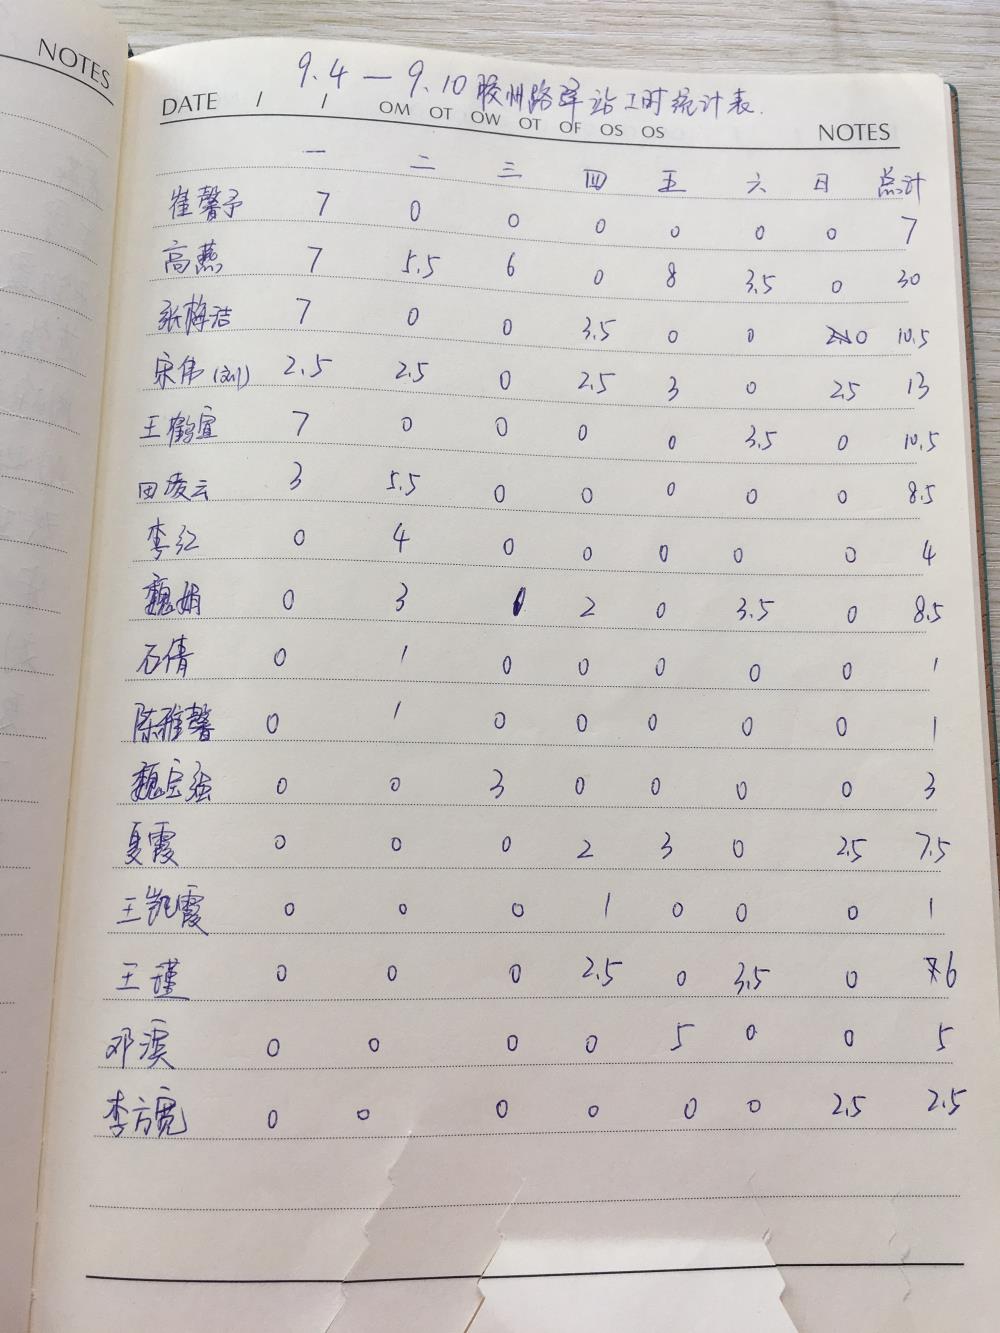 NOTES
9.4 — 9.10 胶州路驿站工时统计表.
DATE / / OM OT OW OT OF OS OS NOTES
一 二 三 四 五 六 日 总计
崔馨予 7 0 0 0 0 0 0 7
高燕 7 5.5 6 0 8 3.5 0 30
张梅洁 7 0 0 3.5 0 0 0 10.5
宋伟 2.5 2.5 0 2.5 3 0 2.5 13
王鹤宣 7 0 0 0 0 3.5 0 10.5
田凌云 3 5.5 0 0 0 0 0 8.5
李红 0 4 0 0 0 0 0 4
魏娟 0 3 0 2 0 3.5 0 8.5
石倩 0 1 0 0 0 0 0 1
陈雅馨 0 1 0 0 0 0 0 1
魏宝强 0 0 3 0 0 0 0 3
夏霞 0 0 0 2 3 0 2.5 7.5
王凯霞 0 0 0 1 0 0 0 1
王瑾 0 0 0 2.5 0 3.5 0 6
邓溪 0 0 0 0 5 0 0 5
李方宽 0 0 0 0 0 0 2.5 2.5